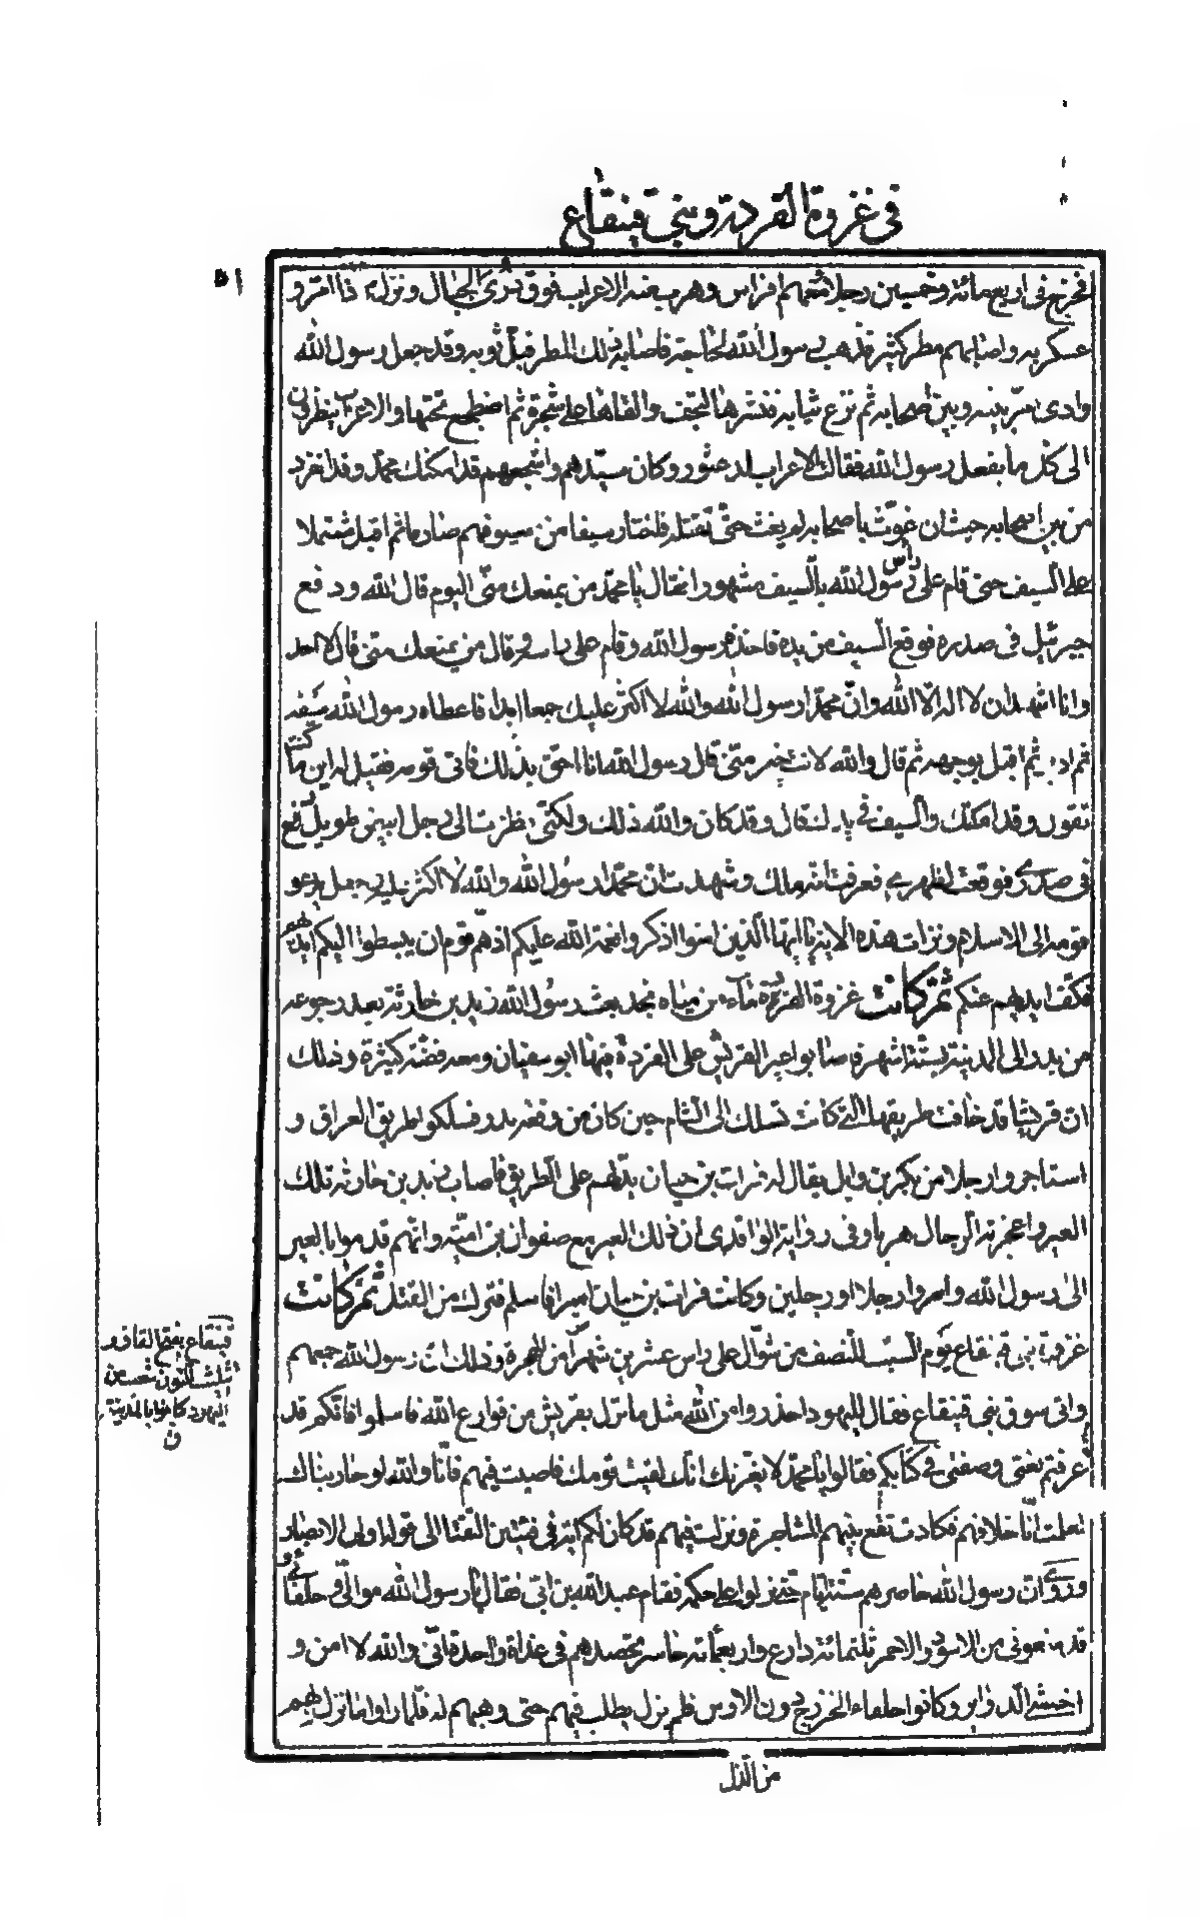 في غزوة القردة وبني قينقاع
٥١
فخرج في اربع مائة وخمسين رجلا معهم افراس وهرب منه الاعراب فوق ذرى الجبال ونزل ذا امرّ و
عسكر به واصابهم مطر كثير فذهب رسول الله لحاجته فاصابه ذلك المطر فبلّ ثوبه وقد جعل رسول الله
وادي امرّ بينه وبين اصحابه ثم نزع ثيابه فنشرها لتجف والقاها على شجرة ثم اضطجع تحتها والاعراب ينظرون
الى كل ما يفعل رسول الله فقالت الاعراب لدعثور وكان سيّدهم واشجعهم قد امكنك محمّد وقد انفرد
من بين اصحابه حيث ان غوّث باصحابه لم يغث حتّى تقتله فاختار سيفا من سيوفهم صارما ثم اقبل مشتملا
على السّيف حتى قام على راس رسول الله بالسّيف مشهورا فقال يا محمّد من يمنعك منّي اليوم قال الله ودفع
جبرئيل في صدره فوقع السّيف من يده فاخذه رسول الله وقام على راسه وقال من يمنعك منّي قال لا احد
وانا اشهد ان لا اله الّا الله وانّ محمّدا رسول الله والله لا اكثر عليك جمعا ابدا فاعطاه رسول الله سيفه
ثم ادبر ثم اقبل بوجهه ثم قال والله لانت خير منّي قال رسول الله انا احق بذلك فاتى قومه فقيل له اين ما كنت
تقول وقد امكنك والسّيف في يدك قال وقد كان والله ذلك ولكنّي نظرت الى رجل ابيض طويل دفع
في صدري فوقعت لظهري فعرفت انّه ملك وشهدت ان محمّدا رسول الله والله لا اكثر عليه جعل يدعو
قومه الى الاسلام ونزلت هذه الاية يا ايها الّذين امنوا اذكروا نعمة الله عليكم اذ همّ قوم ان يبسطوا اليكم ايديهم
فكفّ ايديهم عنكم ثم كانت غزوة القردة ماء من مياه نجد بعث رسول الله زيد بن حارثة بعد رجوعه
من بدر الى المدينة بستّة اشهر فاصابوا عير القريش على القردة فيها ابو سفيان ومعه فضّة كثيرة وذلك
ان قريشا قد خافت طريقها التي كانت تسلك الى الشّام حين كان من وقعة بدر فسلكوا طريق العراق و
استاجروا رجلا من بكر بن وايل يقال له فرات بن حيان يدلّهم على الطّريق فاصاب زيد بن حارثة تلك
العير واعجزته الرّجال هربا وفي رواية الواقدي ان ذلك العير مع صفوان بن اميّة وانّهم قدموا بالعير
الى رسول الله واسروا رجلا او رجلين وكانت فرات بن حيان اسيرا فاسلم فترك من القتل ثم كانت
غزوة بني قينقاع يوم السّبت للنّصف من شوّال على راس عشرين شهرا من الهجرة وذلك ان رسول الله جمعهم
واتى سوق بني قينقاع فقال لليهود احذروا من الله مثل ما نزل بقريش من قوارع الله فاسلموا فانّكم قد
عرفتم نعتي وصفتي في كتابكم فقالوا يا محمّد لا يغرّنك انّك لقيت قومك فاصبت فيهم فانّا والله لو حاربناك
لعلمت انّا خلافهم فكادت تقع بينهم المشاجرة ونزلت فيهم قد كان لكم آية في فئتين التقتا الى قوله اولي الابصار
وروي ان رسول الله حاصرهم ستّة ايام حتى نزلوا على حكمه فقام عبد الله بن ابي فقال يا رسول الله مواليّ وحلفائي و
قد منعوني من الاسود والاحمر ثلثمائة دارع واربعمائة حاسر تحصدهم في غداة واحدة انّي والله لا امن و
اخشى الدّواير وكانوا حلفاء الخزرج دون الاوس فلم يزل يطلب فيهم حتى وهبهم له فلمّا راوا ما نزل بهم
من الذّل
قينقاع بفتح القاف و
تثليث النّون شعب من
اليهود كانوا بالمدينة
ق